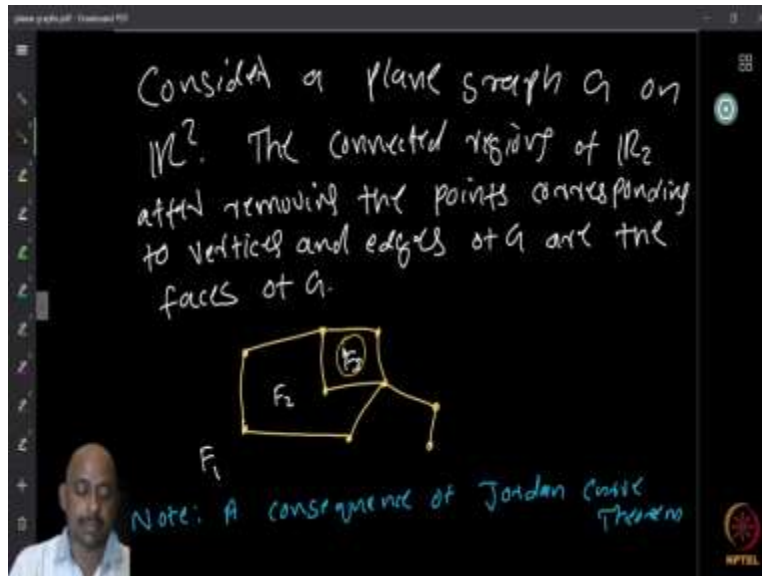 plane graphs.pdf - Download PDF
Consider a plane graph G on
ℝ². The connected regions of ℝ2
after removing the points corresponding
to vertices and edges of G are the
faces of G.
F3
F2
F1
Note: A consequence of Jordan Curve
Theorem
NPTEL